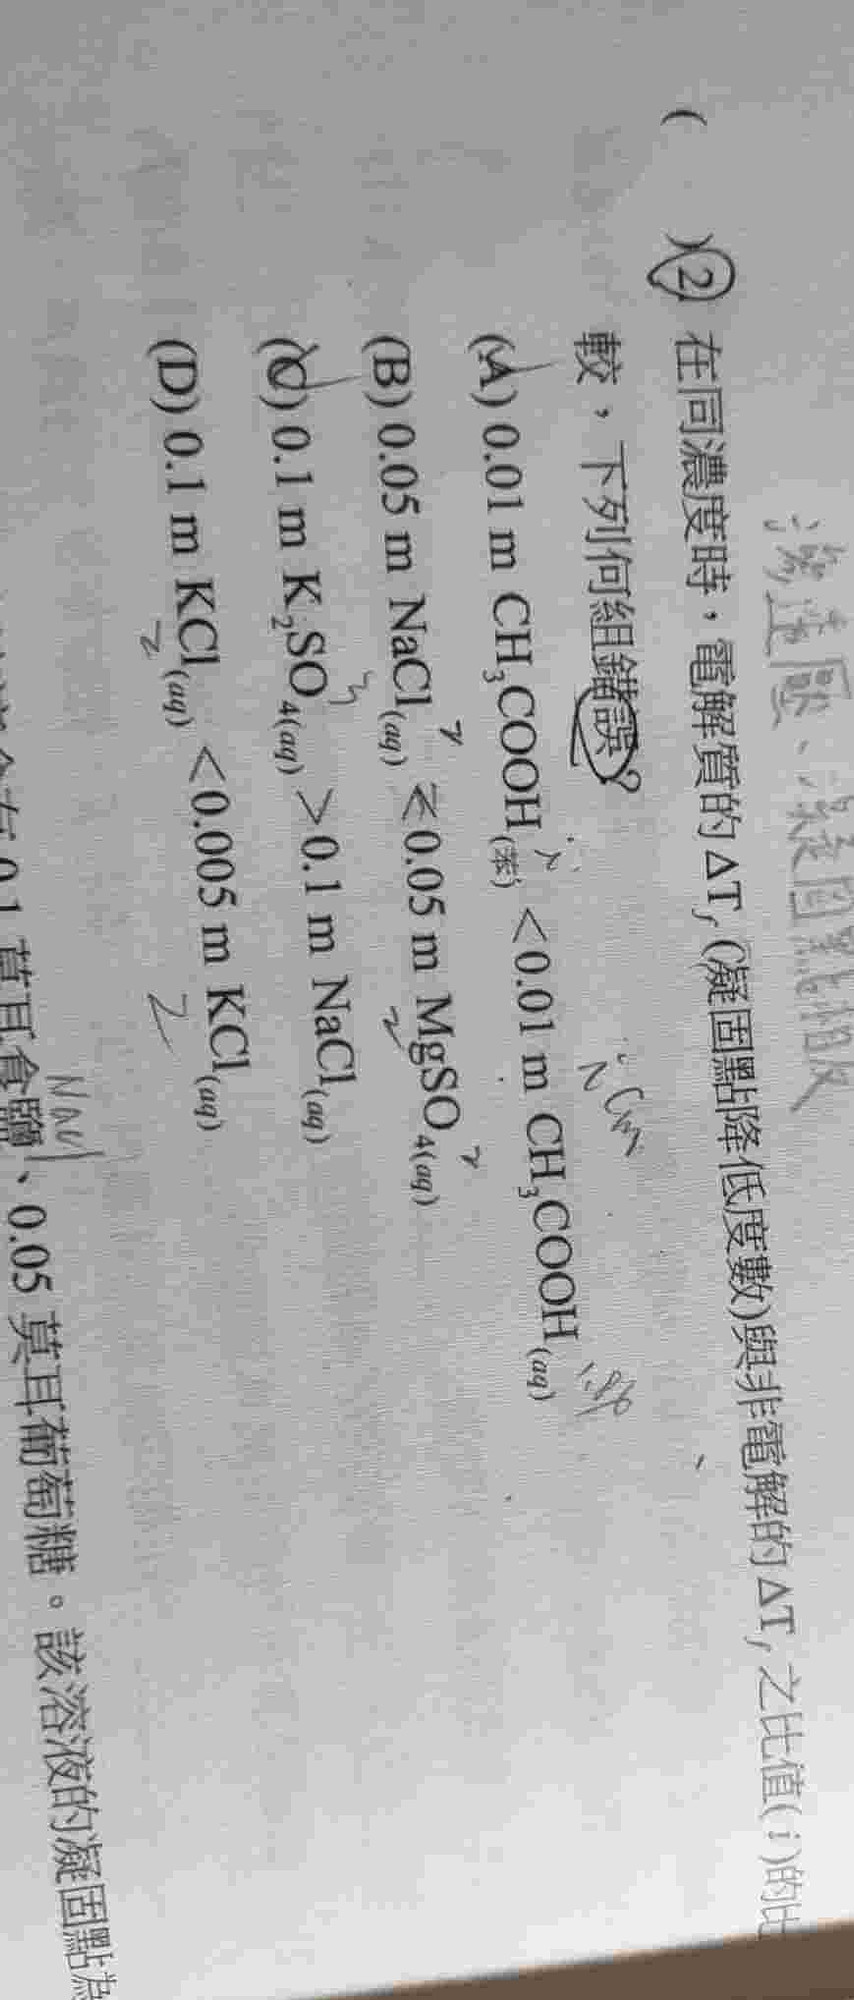 蒸氣壓、凝固點相反
( )2 在同濃度時，電解質的 ΔTf (凝固點降低度數)與非電解的 ΔTf 之比值( i )的比
較，下列何組錯誤？
(A) 0.01 m CH3COOH(苯) <0.01 m CH3COOH(aq)
(B) 0.05 m NaCl(aq) <0.05 m MgSO4(aq)
2 2
(C) 0.1 m K2SO4(aq) >0.1 m NaCl(aq)
3
(D) 0.1 m KCl(aq) <0.005 m KCl(aq)
2 2
NaCl
0.1 莫耳食鹽、0.05 莫耳葡萄糖。該溶液的凝固點為